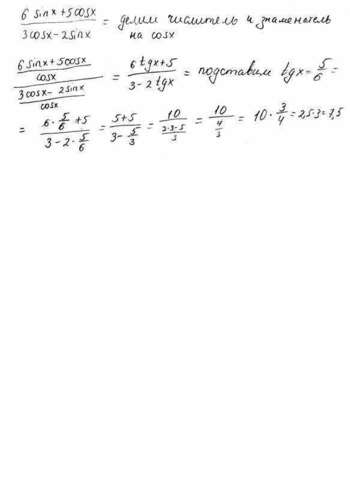 (6 sinx + 5cosx)/(3cosx - 2sinx) = делим числитель и знаменатель
на cosx
((6 sinx + 5cosx)/cosx)/((3cosx - 2sinx)/cosx) = (6tgx + 5)/(3 - 2tgx) = подставим tgx = 5/6 =
= (6 · 5/6 + 5)/(3 - 2 · 5/6) = (5+5)/(3 - 5/3) = 10/((3·3-5)/3) = 10/(4/3) = 10 · 3/4 = 2,5·3 = 7,5